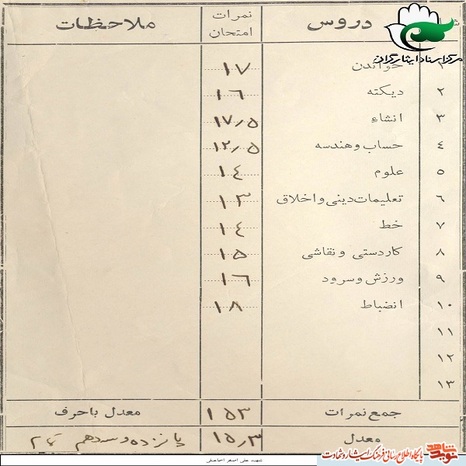 دروس نمرات امتحان ملاحظات
مرکز اسناد ایثارگران
۱ خواندن ۱۷
۲ دیکته ۱۶
۳ انشاء ۱۷٫۵
۴ حساب وهندسه ۱۲٫۵
۵ علوم ۱۴
۶ تعلیمات دینی و اخلاق ۱۳
۷ خط ۱۴
۸ کاردستی ونقاشی ۱۵
۹ ورزش وسرود ۱۶
۱۰ انضباط ۱۸
۱۱
۱۲
۱۳
جمع نمرات ۱۵۳ معدل باحرف
معدل ۱۵٫۳ پانزده و سه دهم تمام
نوید شاهد پایگاه اطلاع رسانی فرهنگ ایثار و شهادت